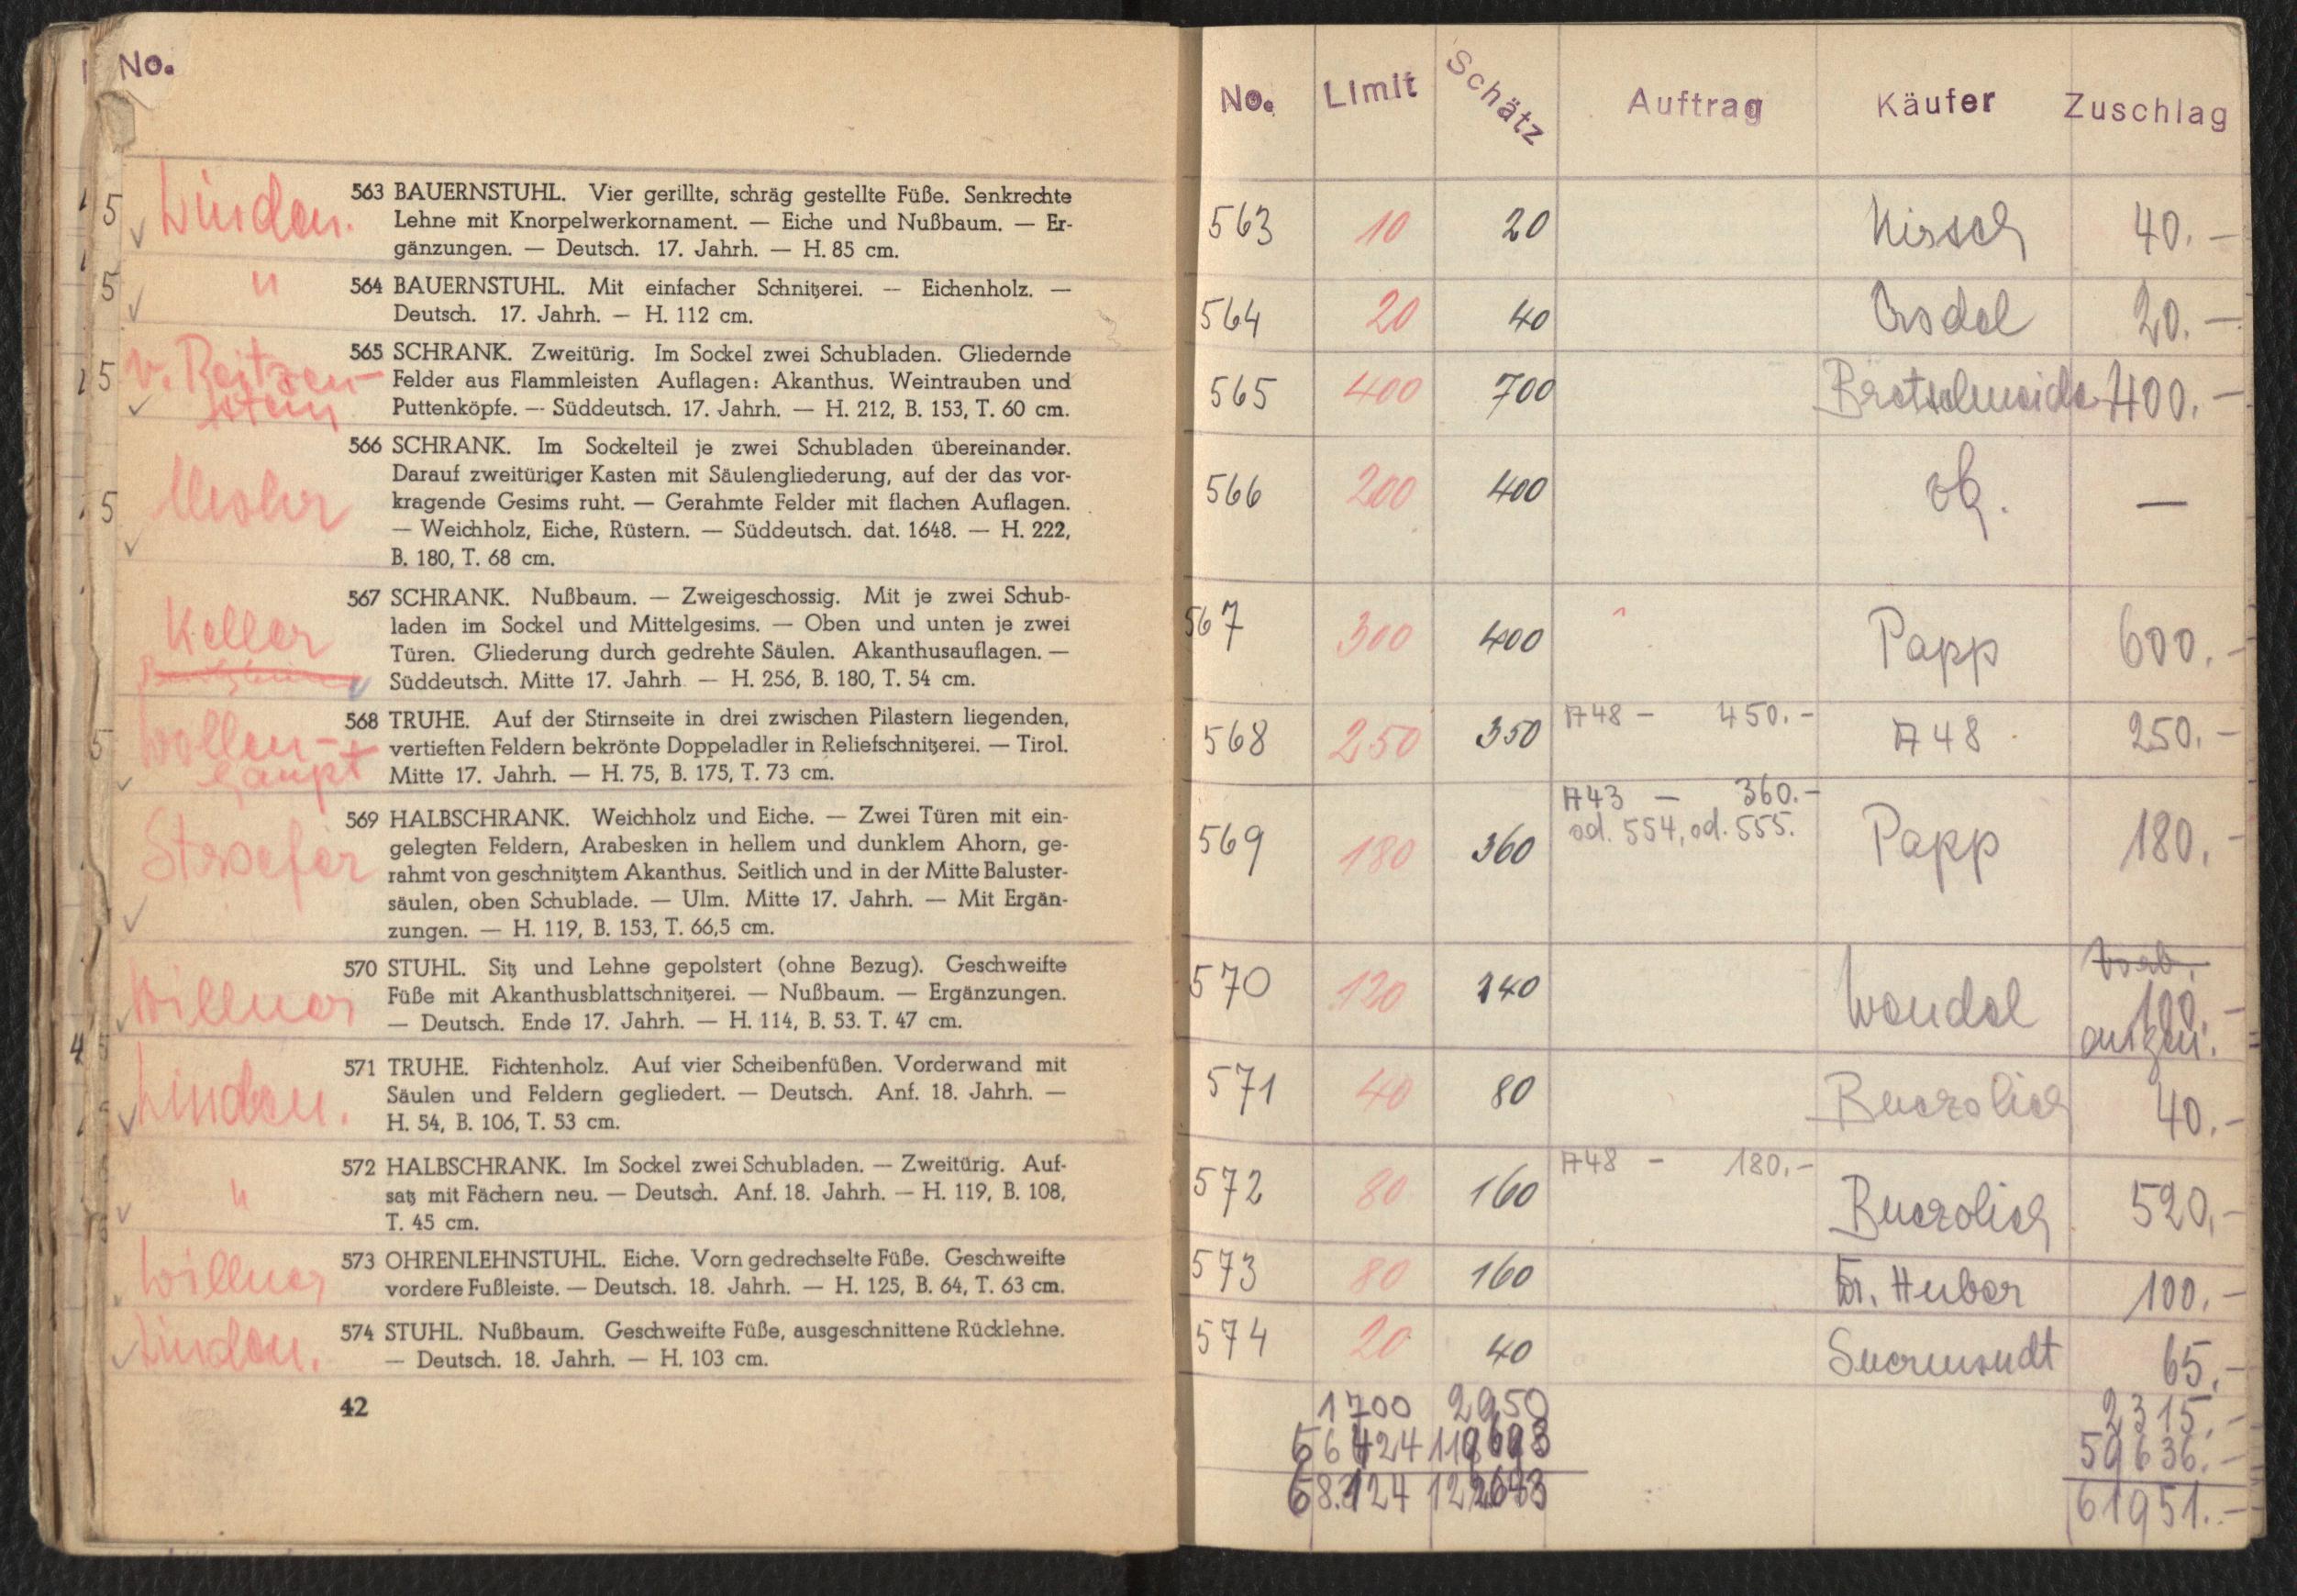 No.
Linden.
563 BAUERNSTUHL. Vier gerillte, schräg gestellte Füße. Senkrechte
Lehne mit Knorpelwerkornament. — Eiche und Nußbaum. — Er-
gänzungen. — Deutsch. 17. Jahrh. — H. 85 cm.
"
564 BAUERNSTUHL. Mit einfacher Schnitzerei. — Eichenholz. —
Deutsch. 17. Jahrh. — H. 112 cm.
v. Reitzen-
stein
565 SCHRANK. Zweitürig. Im Sockel zwei Schubladen. Gliedernde
Felder aus Flammleisten Auflagen: Akanthus. Weintrauben und
Puttenköpfe. — Süddeutsch. 17. Jahrh. — H. 212, B. 153, T. 60 cm.
Mohr
566 SCHRANK. Im Sockelteil je zwei Schubladen übereinander.
Darauf zweitüriger Kasten mit Säulengliederung, auf der das vor-
kragende Gesims ruht. — Gerahmte Felder mit flachen Auflagen.
— Weichholz, Eiche, Rüstern. — Süddeutsch. dat. 1648. — H. 222,
B. 180, T. 68 cm.
Keller
567 SCHRANK. Nußbaum. — Zweigeschossig. Mit je zwei Schub-
laden im Sockel und Mittelgesims. — Oben und unten je zwei
Türen. Gliederung durch gedrehte Säulen. Akanthusauflagen. —
Süddeutsch. Mitte 17. Jahrh — H. 256, B. 180, T. 54 cm.
Wollen-
haupt
568 TRUHE. Auf der Stirnseite in drei zwischen Pilastern liegenden,
vertieften Feldern bekrönte Doppeladler in Reliefschnitzerei. — Tirol.
Mitte 17. Jahrh. — H. 75, B. 175, T. 73 cm.
Stroefer
569 HALBSCHRANK. Weichholz und Eiche. — Zwei Türen mit ein-
gelegten Feldern, Arabesken in hellem und dunklem Ahorn, ge-
rahmt von geschnitztem Akanthus. Seitlich und in der Mitte Baluster-
säulen, oben Schublade. — Ulm. Mitte 17. Jahrh. — Mit Ergän-
zungen. — H. 119, B. 153, T. 66,5 cm.
Willner
570 STUHL. Sitz und Lehne gepolstert (ohne Bezug). Geschweifte
Füße mit Akanthusblattschnitzerei. — Nußbaum. — Ergänzungen.
— Deutsch. Ende 17. Jahrh. — H. 114, B. 53. T. 47 cm.
Linden.
571 TRUHE. Fichtenholz. Auf vier Scheibenfüßen. Vorderwand mit
Säulen und Feldern gegliedert. — Deutsch. Anf. 18. Jahrh. —
H. 54, B. 106, T. 53 cm.
"
572 HALBSCHRANK. Im Sockel zwei Schubladen. — Zweitürig. Auf-
satz mit Fächern neu. — Deutsch. Anf. 18. Jahrh. — H. 119, B. 108,
T. 45 cm.
Willner
573 OHRENLEHNSTUHL. Eiche. Vorn gedrechselte Füße. Geschweifte
vordere Fußleiste. — Deutsch. 18. Jahrh. — H. 125, B. 64, T. 63 cm.
Linden.
574 STUHL. Nußbaum. Geschweifte Füße, ausgeschnittene Rücklehne.
— Deutsch. 18. Jahrh. — H. 103 cm.
42
No. Limit Schätz Auftrag Käufer Zuschlag
563 10 20 Hirsch 40.—
564 20 40 Orsdel 20.—
565 400 700 Bretschneider 400.—
566 200 400 —
567 300 400 Papp 600.—
568 250 350 A48 — 450.— A48 250.—
569 180 360 A43 — 360.— Papp 180.—
od. 554, od. 555.
570 120 240 Wendel 100.—
571 40 80 40.—
572 80 160 A48 — 180.— 520,—
573 80 160 Dr. Huber 100.—
574 20 40 65,—
1700 2950 2315.—
66424 59636.—
68.124 122643 61951.—